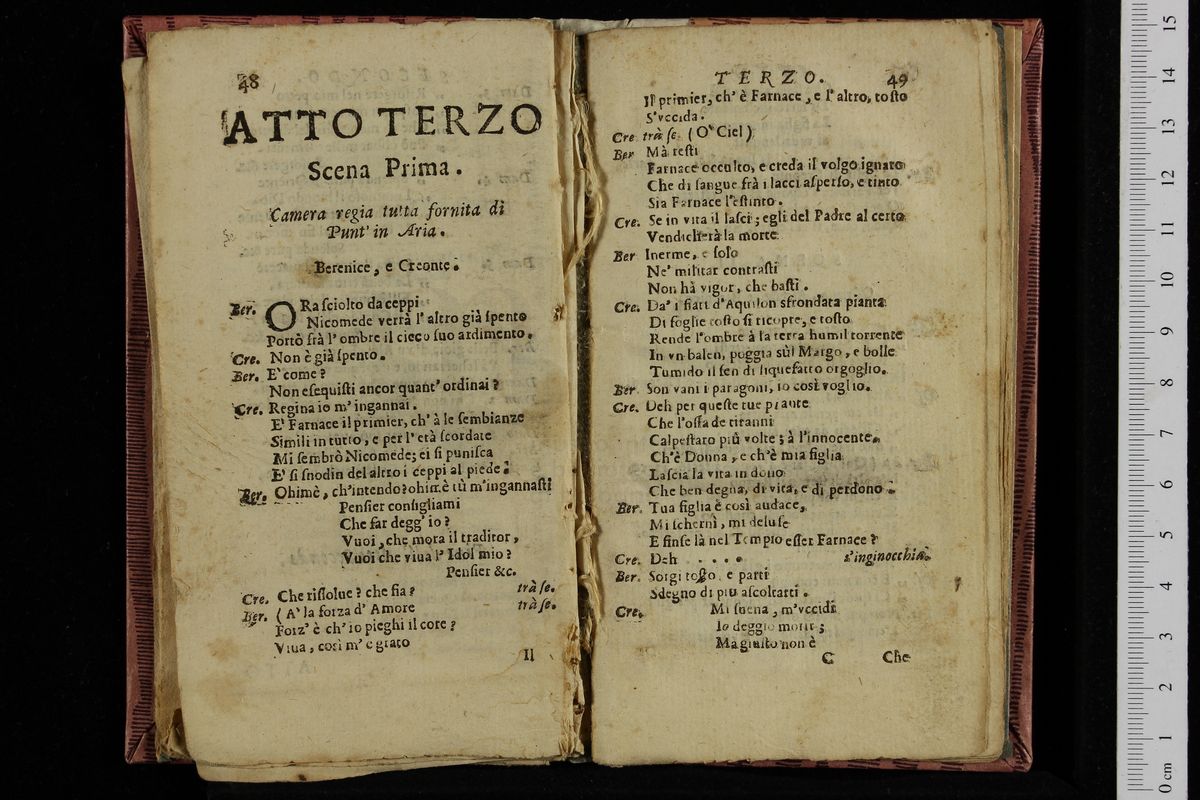 48
ATTO TERZO
Scena Prima.
Camera regia tutta fornita di
Punt' in Aria.
Berenice, e Creonte.
Ber. ORa sciolto da ceppi
Nicomede verrà l' altro già spento
Portò frà l' ombre il cieco suo ardimento.
Cre. Non è già spento.
Ber. E' come?
Non esequisti ancor quant' ordinai?
Cre. Regina io m' ingannai.
E' Farnace il primier, ch' à le sembianze
Simili in tutto, e per l' età scordate
Mi sembrò Nicomede; ei si punisca
E' si snodin del altro i ceppi al piede.
Ber. Ohimè, ch'intendo? ohimè tù m'ingannasti
Pensier consigliami
Che far degg' io?
Vuoi, che mora il traditor,
Vuoi che viua l' Idol mio?
Pensier &c.
Cre. Che rissolue? che fia? trà se.
Ber. (A' la forza d' Amore trà se.
Forz' è ch' io pieghi il core?
Viua, così m' è grato
Il
TERZO. 49
Il primier, ch' è Farnace, e l' altro, tosto
S'vccida.
Cre trà se. (O' Ciel)
Ber Mà resti
Farnace occulto, e creda il volgo ignaro
Che di sangue frà i lacci asperso, e tinto
Sia Farnace l'estinto.
Cre. Se in vita il lasci; egli del Padre al certo
Vendicherà la morte.
Ber Inerme, e solo
Ne' militar contrasti
Non hà vigor, che basti.
Cre. Da' i fiati d'Aquilon sfrondata pianta
Di foglie tosto si ricopre, e tosto
Rende l'ombre à la terra humil torrente
In vn balen, poggia sùl Margo, e bolle
Tumido il sen di liquefatto orgoglio.
Ber. Son vani i paragoni, io così voglio.
Cre. Deh per queste tue piante
Che l'ossa de tiranni
Calpestaro più volte; à l'innocente,
Ch'è Donna, e ch'è mia figlia
Lascia la vita in dono
Che ben degna, di vita, e di perdono.
Ber. Tua figlia è così audace,
Mi schernì, mi deluse
E finse là nel Tempio esser Farnace?
Cre. Deh . . . . . s'inginocchia.
Ber. Sorgi tosto, e parti
Sdegno di più ascoltarti.
Cre. Mi suena, m'vccidi
Io deggio morir;
Ma giusto non è
C Che